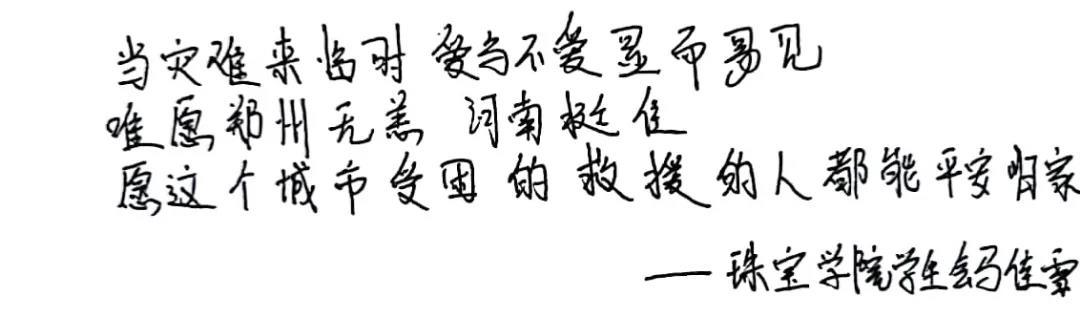 当灾难来临时 爱与不爱显而易见
唯愿郑州无恙 河南挺住
愿这个城市受困的救援的人都能平安归家
——珠宝学院学生会马佳雯